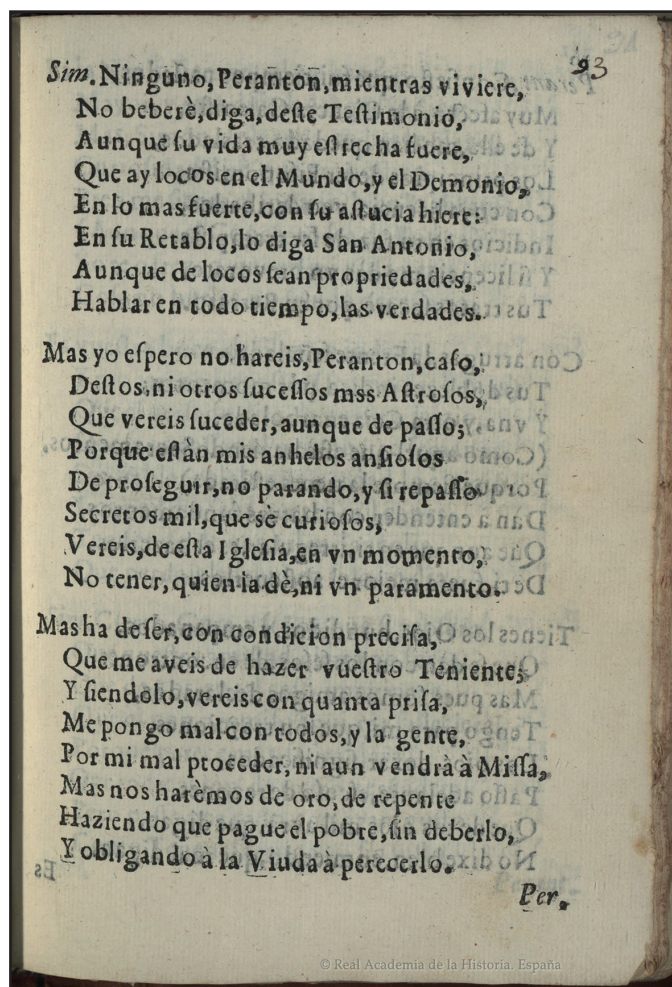 93
Sim. Ninguno, Perantoñ, mientras viviere,
No beberè, diga, deſte Teſtimonio,
Aunque ſu vida muy eſtrecha fuere,
Que ay locos en el Mundo, y el Demonio,
En lo mas fuerte, con ſu aſtucia hiere:
En ſu Retablo, lo diga San Antonio,
Aunque de locos ſean propriedades,
Hablar en todo tiempo, las verdades.
Mas yo eſpero no hareis, Peranton, caſo,
Deſtos, ni otros ſuceſſos mss Aſtroſos,
Que vereis ſuceder, aunque de paſſo;
Porque eſtàn mis anhelos anſioſos
De proſeguir, no parando, y ſi repaſſo
Secretos mil, que sè curioſos,
Vereis, de eſta Igleſia, en vn momento,
No tener, quien la dè, ni vn paramento.
Mas ha de ſer, con condicion preciſa,
Que me aveis de hazer vueſtro Teniente;
Y ſiendolo, vereis con quanta priſa,
Me pongo mal con todos, y la gente,
Por mi mal proceder, ni aun vendrà à Miſſa,
Mas nos harèmos de oro, de repente
Haziendo que pague el pobre, ſin deberlo,
Y obligando à la Viuda à perecerlo.
Per.
© Real Academia de la Historia. España